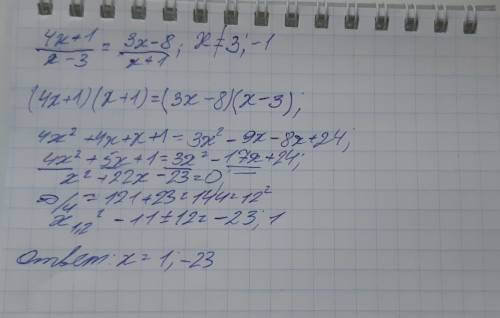 (4x+1)/(x-3) = (3x-8)/(x+1); x≠3;-1
(4x+1)(x+1)=(3x-8)(x-3);
4x²+4x+x+1=3x²-9x-8x+24;
4x²+5x+1=3x²-17x+24;
x²+22x-23=0
D/4=121+23=144=12²
x₁,₂=-11±12=-23;1
Ответ: x=1;-23